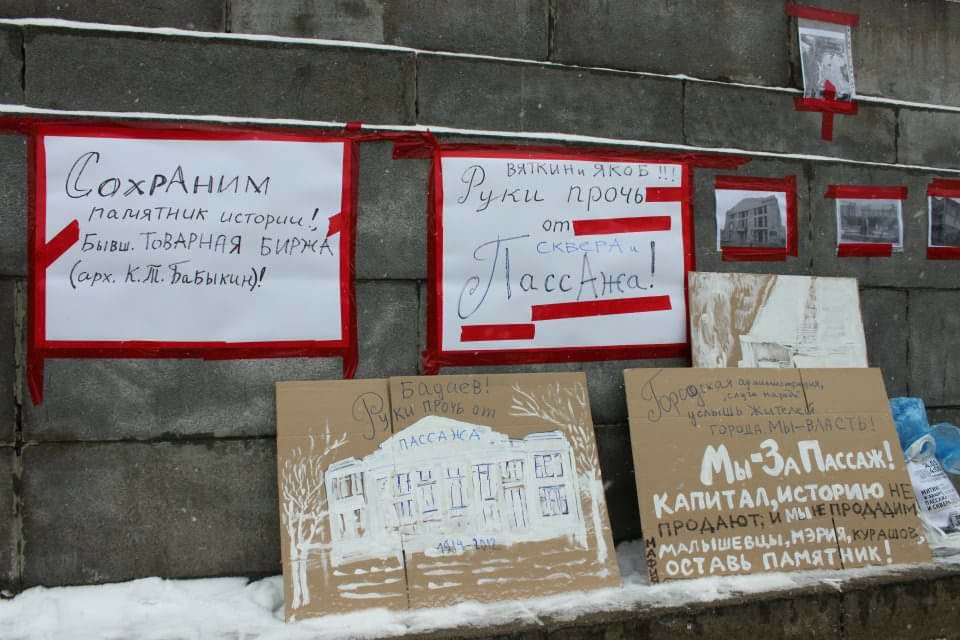 СОХРАНИМ
ПАМЯТНИК ИСТОРИИ!,
БЫВШ. ТОВАРНАЯ БИРЖА
(арх. К.Т. БАБЫКИН)!
ВЯТКИН и ЯКОБ!!!
Руки прочь
от
СКВЕРА и
ПассАжа!
БАДАЕВ!
РУКИ ПРОЧЬ ОТ
ПАССАЖА
Городская администрация,
"слуги народа"
УСЛЫШЬ ЖИТЕЛЕЙ
ГОРОДА. МЫ-ВЛАСТЬ!
МЫ-ЗА ПАССАЖ!
КАПИТАЛ, ИСТОРИЮ НЕ
ПРОДАЮТ; И МЫ НЕ ПРОДАДИМ
МАЛЫШЕВЦЫ, МЭРИЯ, КУРАШОВ,
ОСТАВЬ ПАМЯТНИК!